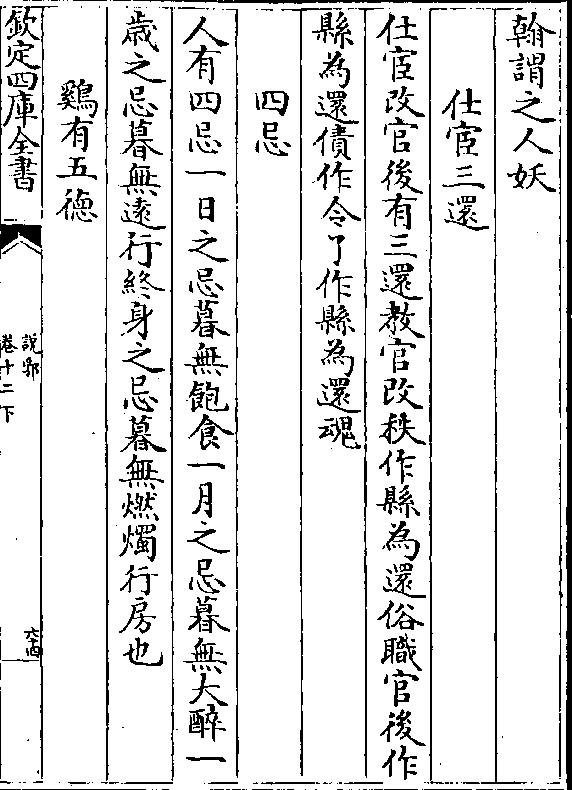 翰謂之人妖
仕宦三還
仕宦改官後有三還教官改秩作縣為還俗職官後作
縣為還債作令了作縣為還魂
四忌
人有四忌一日之忌暮無飽食一月之忌暮無大醉一
歳之忌暮無逺行終身之忌暮無燃燭行房也
鷄有五德
欽定四庫全書
說郛
卷十二下
六十四